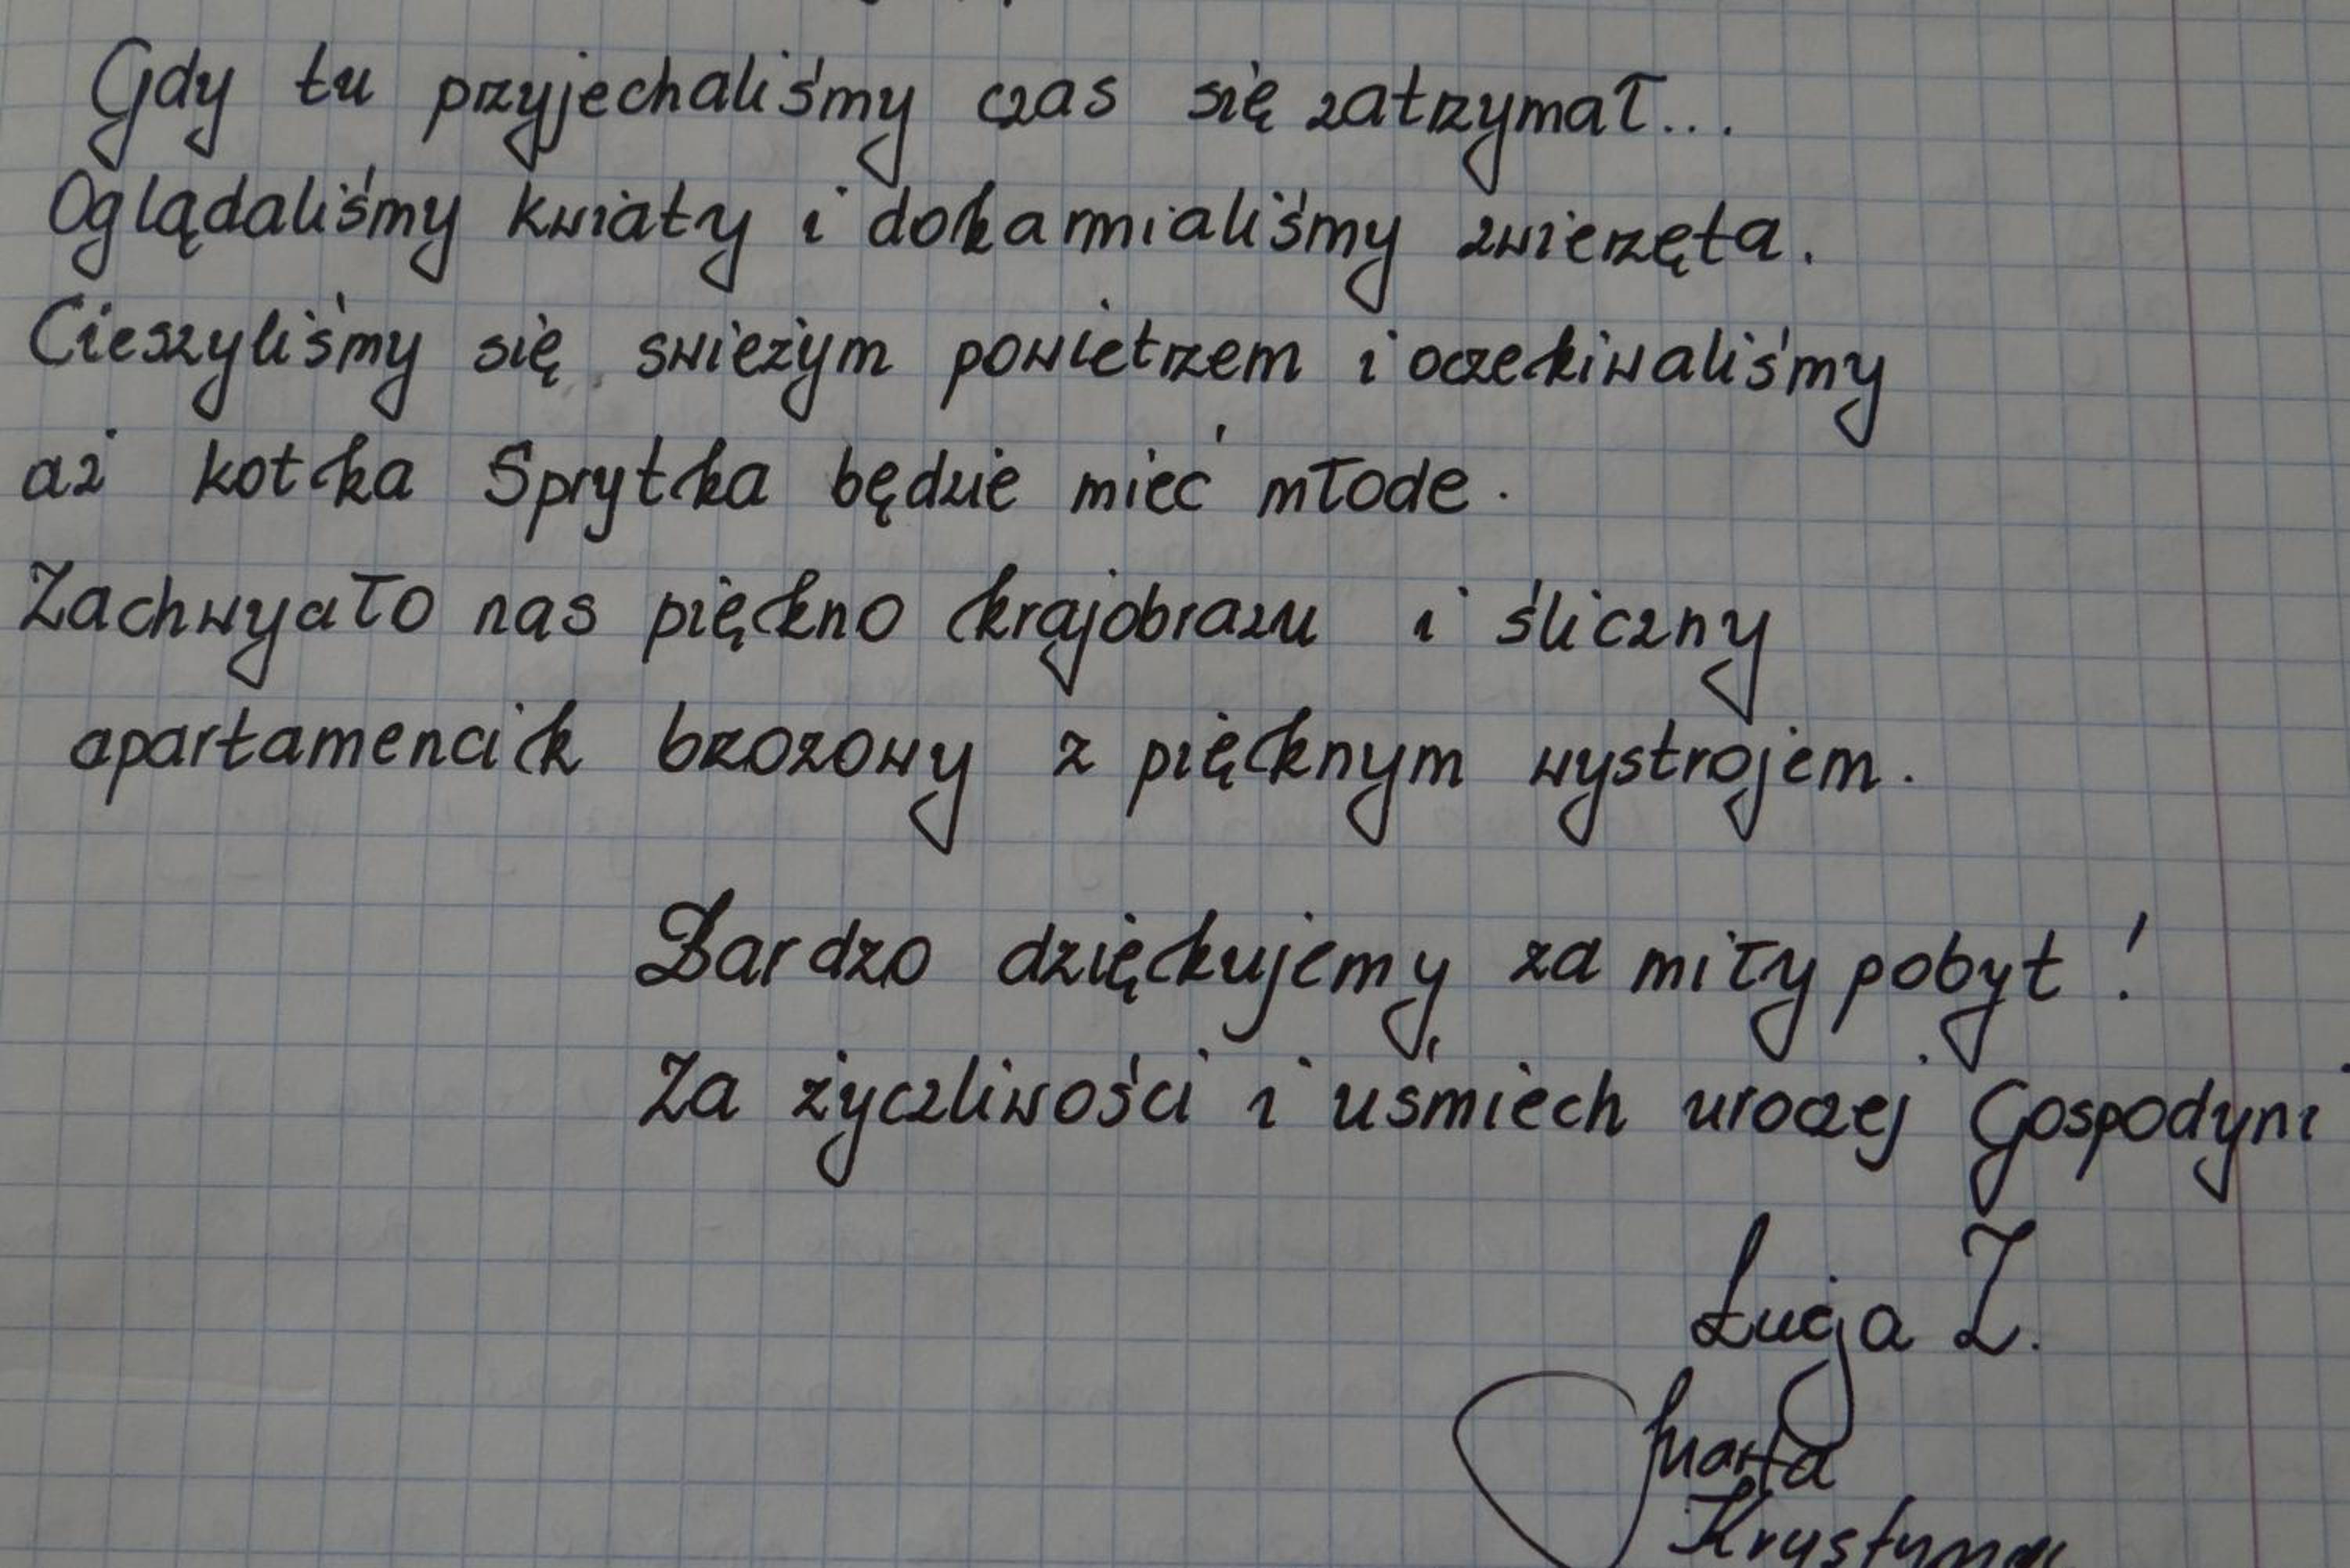 Gdy tu przyjechaliśmy czas się zatrzymał...
Oglądaliśmy kwiaty i dokarmialiśmy zwierzęta.
Cieszyliśmy się swieżym powietrzem i oczekiwaliśmy
aż kotka Sprytka będzie mieć młode.
Zachwycało nas piękno krajobrazu i śliczny
apartamencik brzozowy z pięknym wystrojem.
Bardzo dziękujemy za miły pobyt!
Za życzliwości i uśmiech uroczej Gospodyni
Łucja Z.
Marta
Krystyna